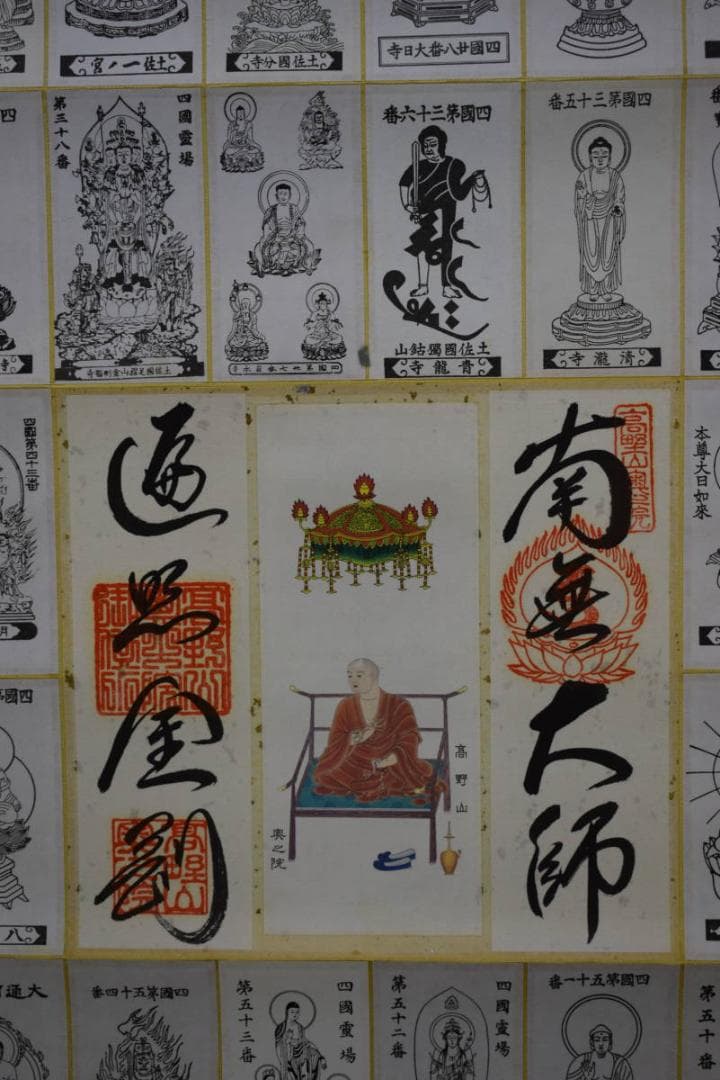 土佐一ノ宮
土佐國分寺
四國廿八番大日寺
四國第三十五番
清瀧寺
四國第三十六番
土佐國獨鈷山
青龍寺
四國霊場
第三十八番
本尊大日如來
南無大師
遍照金剛
高野山奥之院
高野山
奥之院
四國第四十三番
四國第五十一番
四國霊場
第五十二番
四國霊場
第五十三番
四國第五十四番
第五十